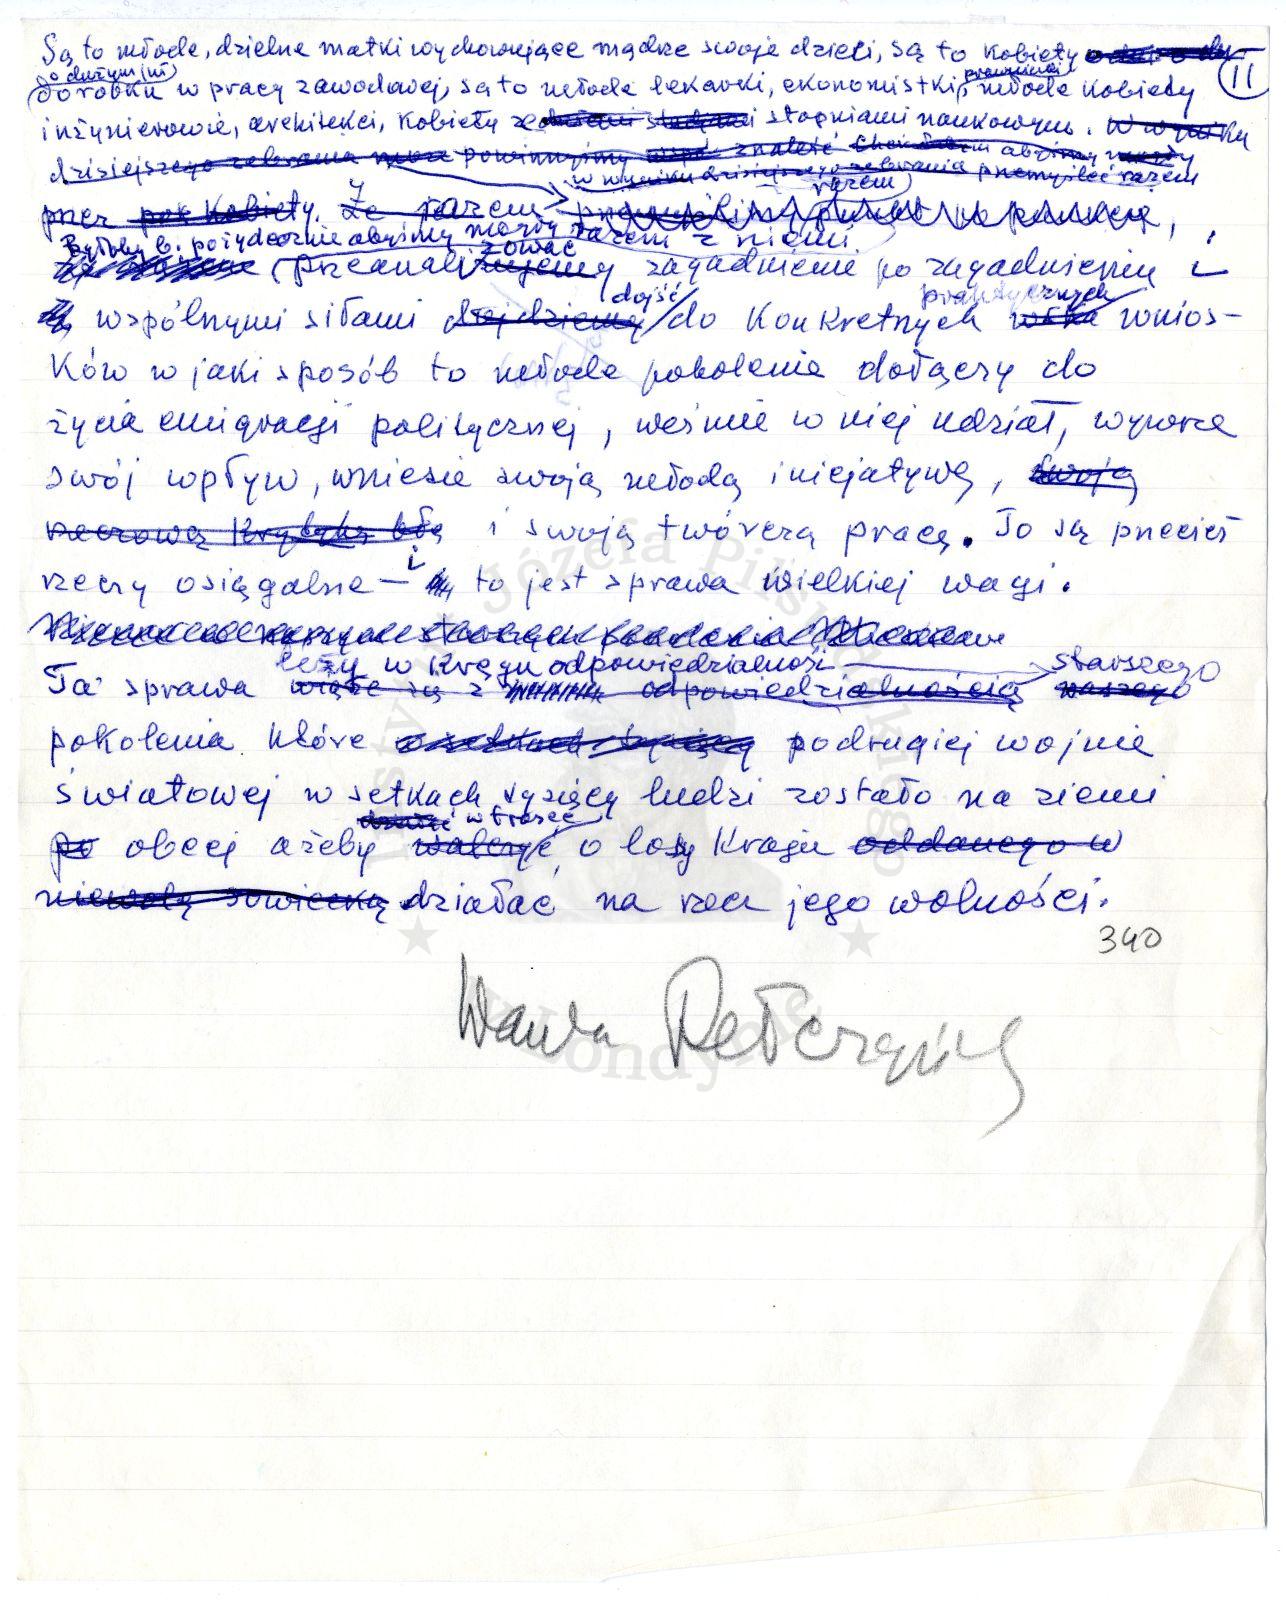 Są to młode, dzielne matki wychowujące mądrze swoje dzieci, są to kobiety
11
o dużym
dorobku w pracy zawodowej, są to młode lekarki, ekonomistki, młode kobiety
inżynierowie, architekci, kobiety ze stopniami naukowym. W wyniku
dzisiejszego zebrania może powinnyśmy znaleść abyśmy mogły
w wyniku dzisiejszego zebrania przemyśleć razem
razem
przez kobiety. Że razem
Byłoby b. pożyteczne abyśmy mogły razem z niemi
zować
(przeanalizujemy zagadnienie po zagadnieniu i
dojść praktycznych
wspólnymi siłami dojdziemy do konkretnych wnios-
ków w jaki sposób to młode pokolenie dołączy do
życia emigracji politycznej, weźmie w niej udział, wywrze
swój wpływ, wniesie swoją młodą inicjatywę, swoją
rzeczową krytykę i swoją twórczą pracę. To są przecież
rzeczy osiągalne – i to jest sprawa wielkiej wagi.
leży w kręgu odpowiedzialności starszego
Ta sprawa wiąże się z odpowiedzialnością naszego
pokolenia które po drugiej wojnie
światowej w setkach tysięcy ludzi zostało na ziemi
w trosce
po obcej ażeby walczyć o losy Kraju oddanego w
niewolę sowiecką działać na rzecz jego wolności.
340
Wanda Pełczyńska
Instytut Józefa Piłsudskiego
w Londynie